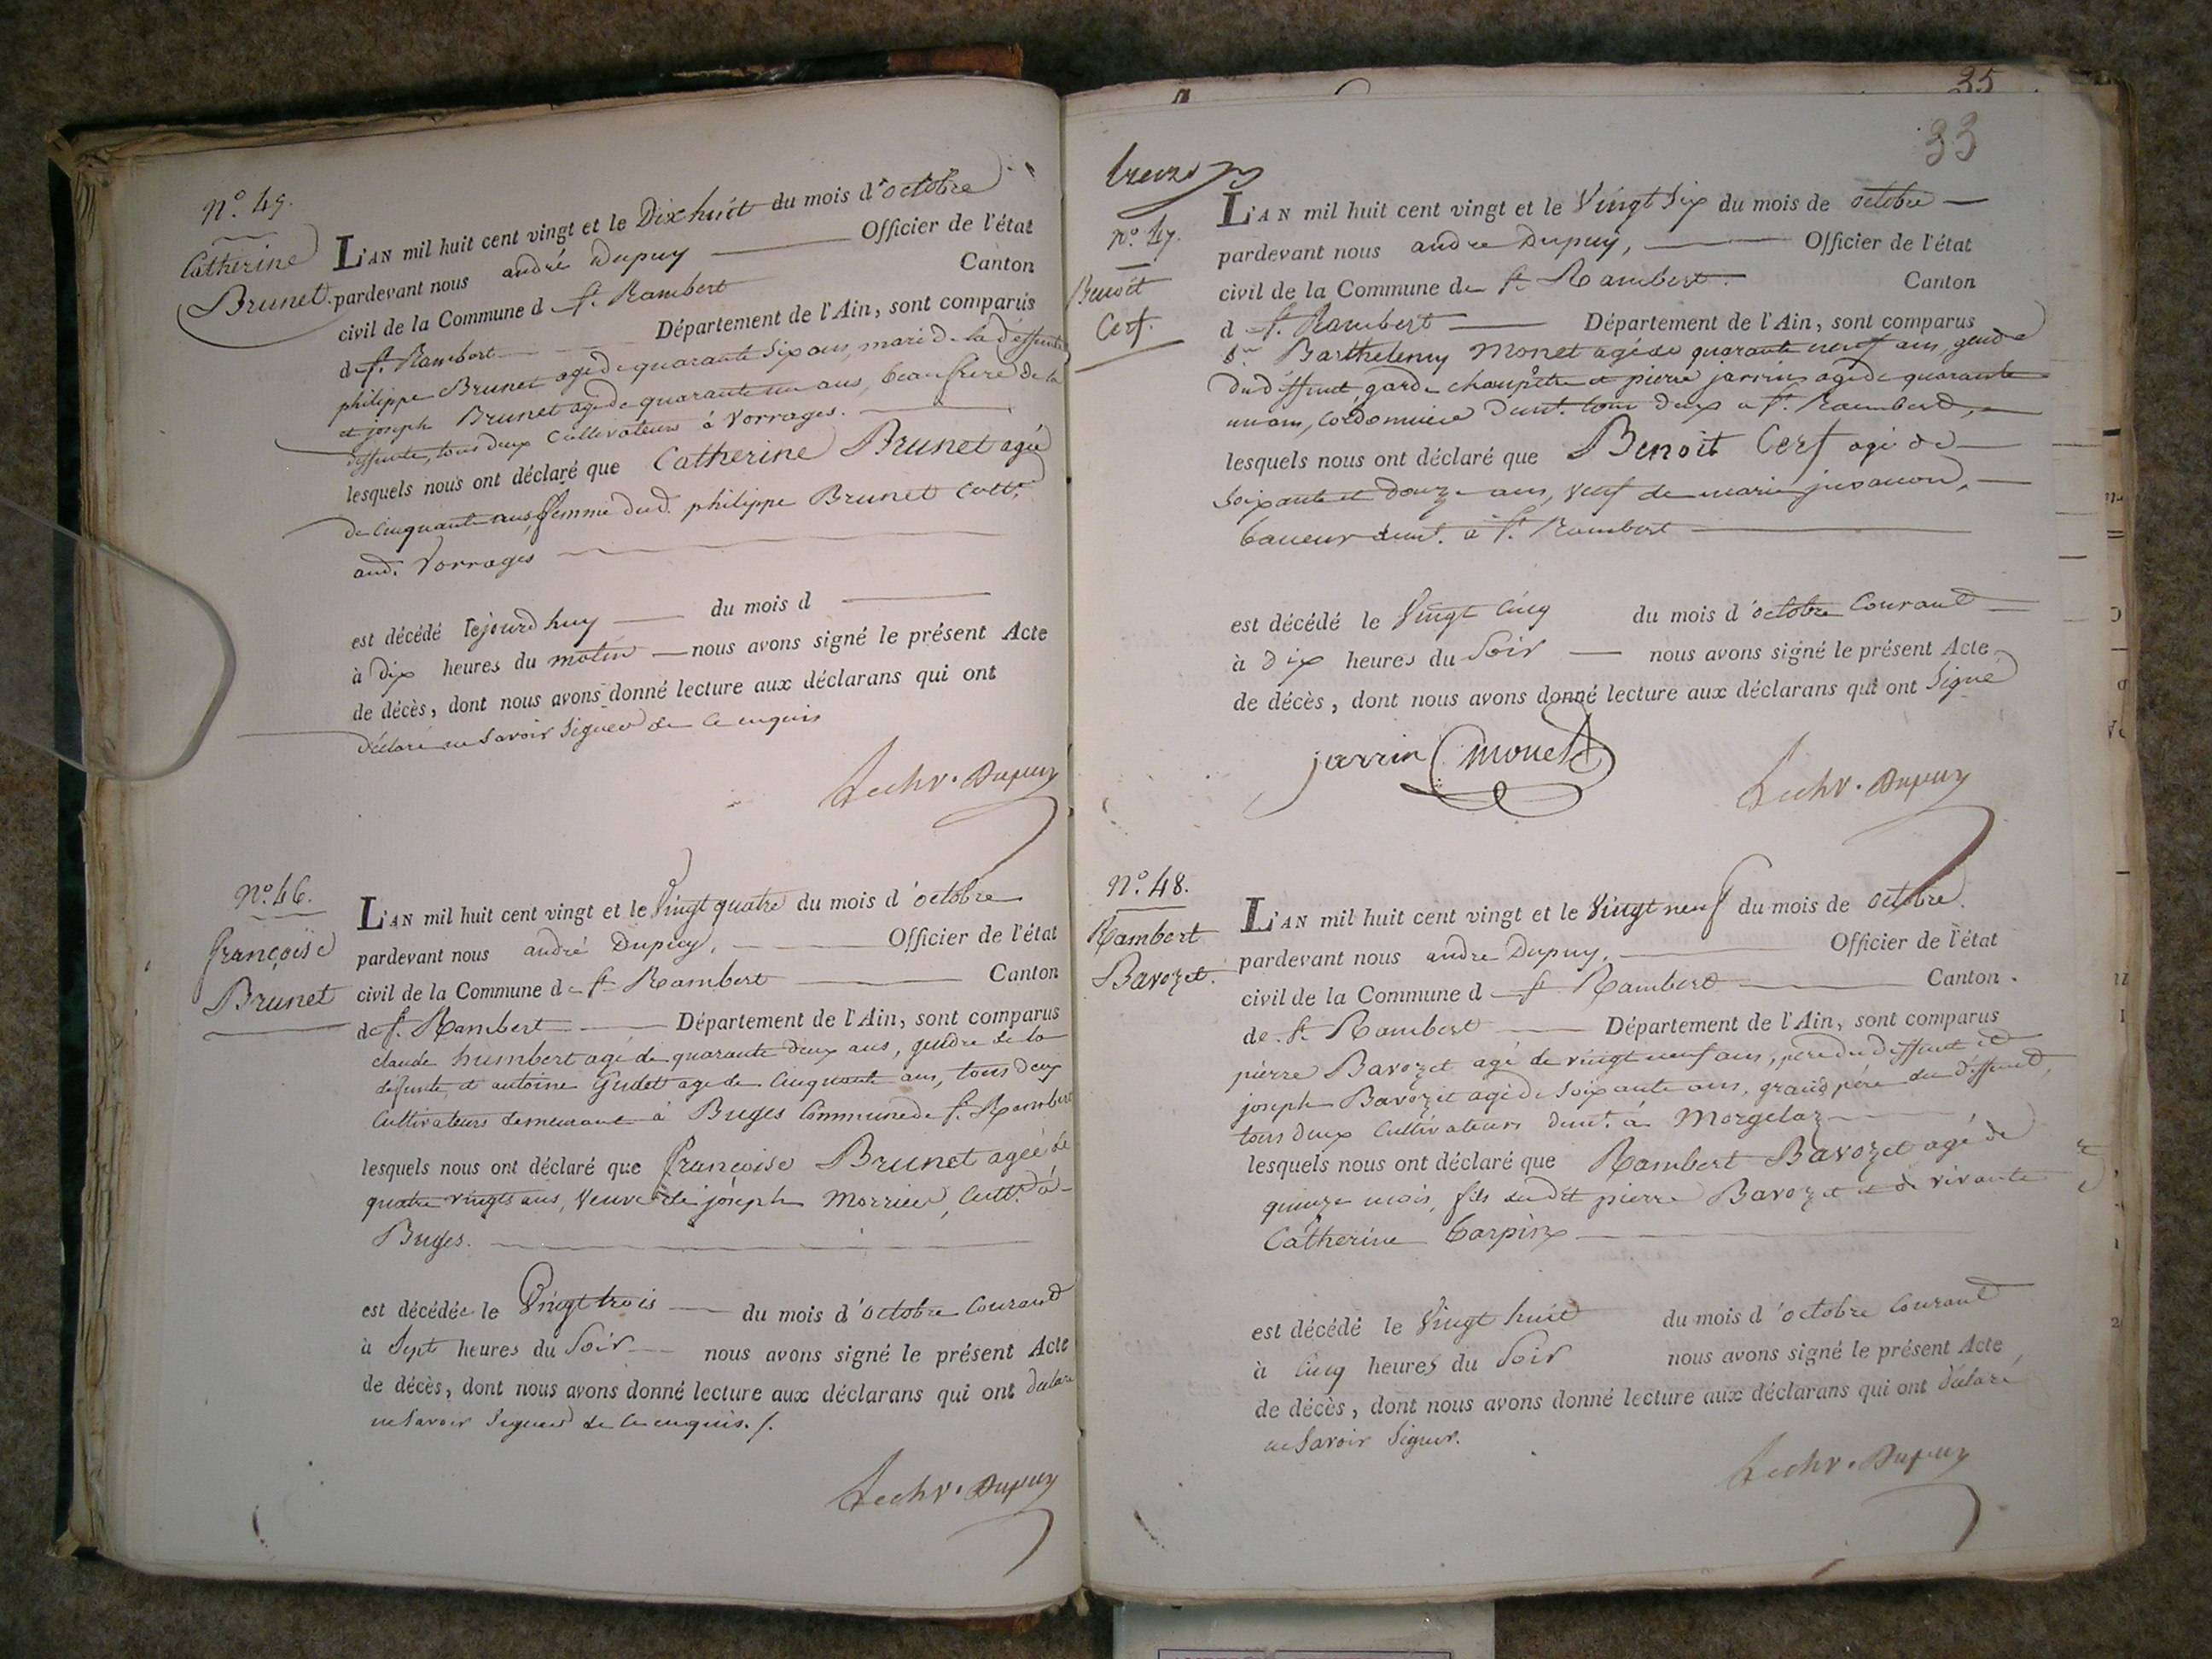 n.° 45.
Catherine
Brunet.
L'AN mil huit cent vingt et le Dix huit du mois d'octobre
pardevant nous andré Dupuy Officier de l'état
civil de la Commune d St. Rambert Canton
d St. Rambert Département de l'Ain, sont comparus
philippe Brunet agé de quarante Six ans, mari de la deffunte
et joseph Brunet agé de quarante un ans, beau frere de la
deffunte, tous deux Cultivateurs à Vorrages.
lesquels nous ont déclaré que Catherine Brunet agée
de Cinquante ans, femme dud. philippe Brunet Cultr.
aud. Vorrages
est décédé lejourdhuy du mois d
à dix heures du matin nous avons signé le présent Acte
de décès, dont nous avons donné lecture aux déclarans qui ont
déclaré ne Savoir Signer de Ce enquis
Dupuy
n.° 46.
françoise
Brunet
L'AN mil huit cent vingt et le Vingt quatre du mois d'octobre
pardevant nous andré Dupuy, Officier de l'état
civil de la Commune de St Rambert Canton
de St. Rambert Département de l'Ain, sont comparus
claude humbert agé de quarante deux ans, gendre de la
défunte, et antoine Gudet agé de Cinquante ans, tous deux
Cultivateurs demeurant à Buges Commune de St. Rambert
lesquels nous ont déclaré que françoise Brunet agée de
quatre vingts ans, Veuve de joseph Morrier, Cultr. à
Buges.
est décédée le Vingt trois du mois d'octobre Courant
à Sept heures du Soir nous avons signé le présent Acte
de décès, dont nous avons donné lecture aux déclarans qui ont déclaré
ne Savoir Signer de Ce enquis./.
Dupuy
35
33
n.° 47.
Benoit
Cerf.
L'AN mil huit cent vingt et le Vingt Six du mois de octobre
pardevant nous andre Dupuy, Officier de l'état
civil de la Commune de St Rambert. Canton
d St. Rambert Département de l'Ain, sont comparus
Sr. Barthelemy Monet agé de quarante neuf ans, gendre
du déffunt, garde champêtre et pierre jarrin agé de quarante
un ans, Cordonnier demt. tous deux a St. Rambert,
lesquels nous ont déclaré que Benoit Cerf agé de
Soixante et Douze ans, Veuf de marie
demt. à St. Rambert
est décédé le Vingt Cinq du mois d'octobre Courant
à dix heures du Soir nous avons signé le présent Acte
de décès, dont nous avons donné lecture aux déclarans qui ont Signé
jarrin Monet
Dupuy
n.° 48.
Rambert
Bavozet.
L'AN mil huit cent vingt et le Vingt neuf du mois de octobre.
pardevant nous andre Dupuy, Officier de l'état
civil de la Commune d St Rambert Canton.
de St. Rambert Département de l'Ain, sont comparus
pierre Bavozet agé de vingt neuf ans, pere du deffunt et
joseph Bavozet agé de Soixante ans, grand pére du déffunt,
tous deux Cultivateurs demt. à Morgelaz
lesquels nous ont déclaré que Rambert Bavozet agé de
quinze mois, fils dudit pierre Bavozet et de vivante
Catherine Carpin
est décédé le Vingt huit du mois d'octobre Courant
à Cinq heures du Soir nous avons signé le présent Acte
de décès, dont nous avons donné lecture aux déclarans qui ont déclaré
ne Savoir Signer.
Dupuy